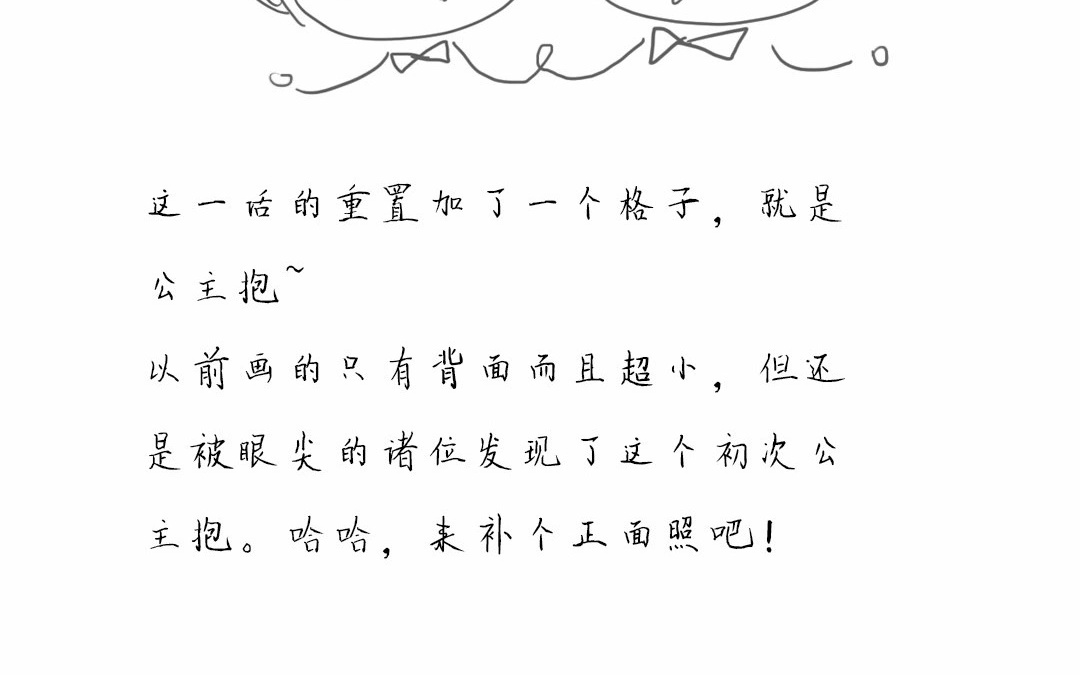 这一话的重置加了一个格子，就是
公主抱~
以前画的只有背面而且超小，但还
是被眼尖的诸位发现了这个初次公
主抱。哈哈，来补个正面照吧！